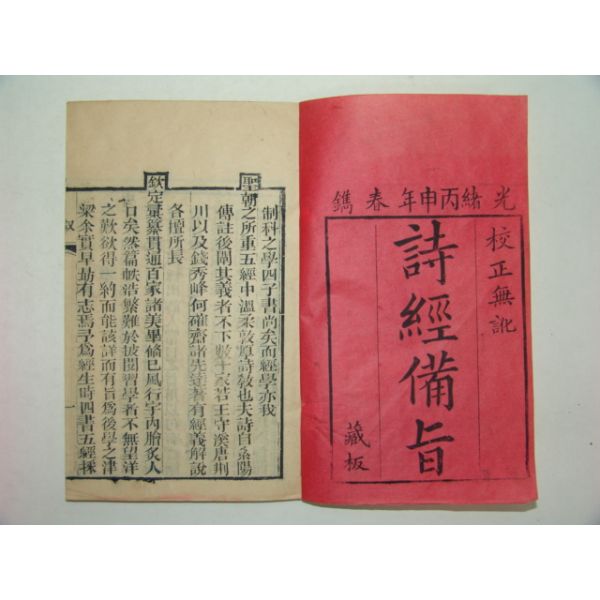 光緒丙申年春鐫
校正無訛
詩經備旨
藏板
制科之學四子書尚矣而經學亦我
聖朝之所重五經中溫柔敦厚詩教也夫詩自紫陽
傳註後闡其義者不下數十家若王守溪唐荆
川以及錢秀峰何確齋諸先達著有經義解說
各擅所長
欽定彙纂貫通百家諸美畢備已風行宇內膾炙人
口矣然篇帙浩繁難於披閱習學者不無望洋
之歎欲得一約而能該詳而有旨爲後學之津
梁余實早勗有志焉予爲經生時四書五經採
一